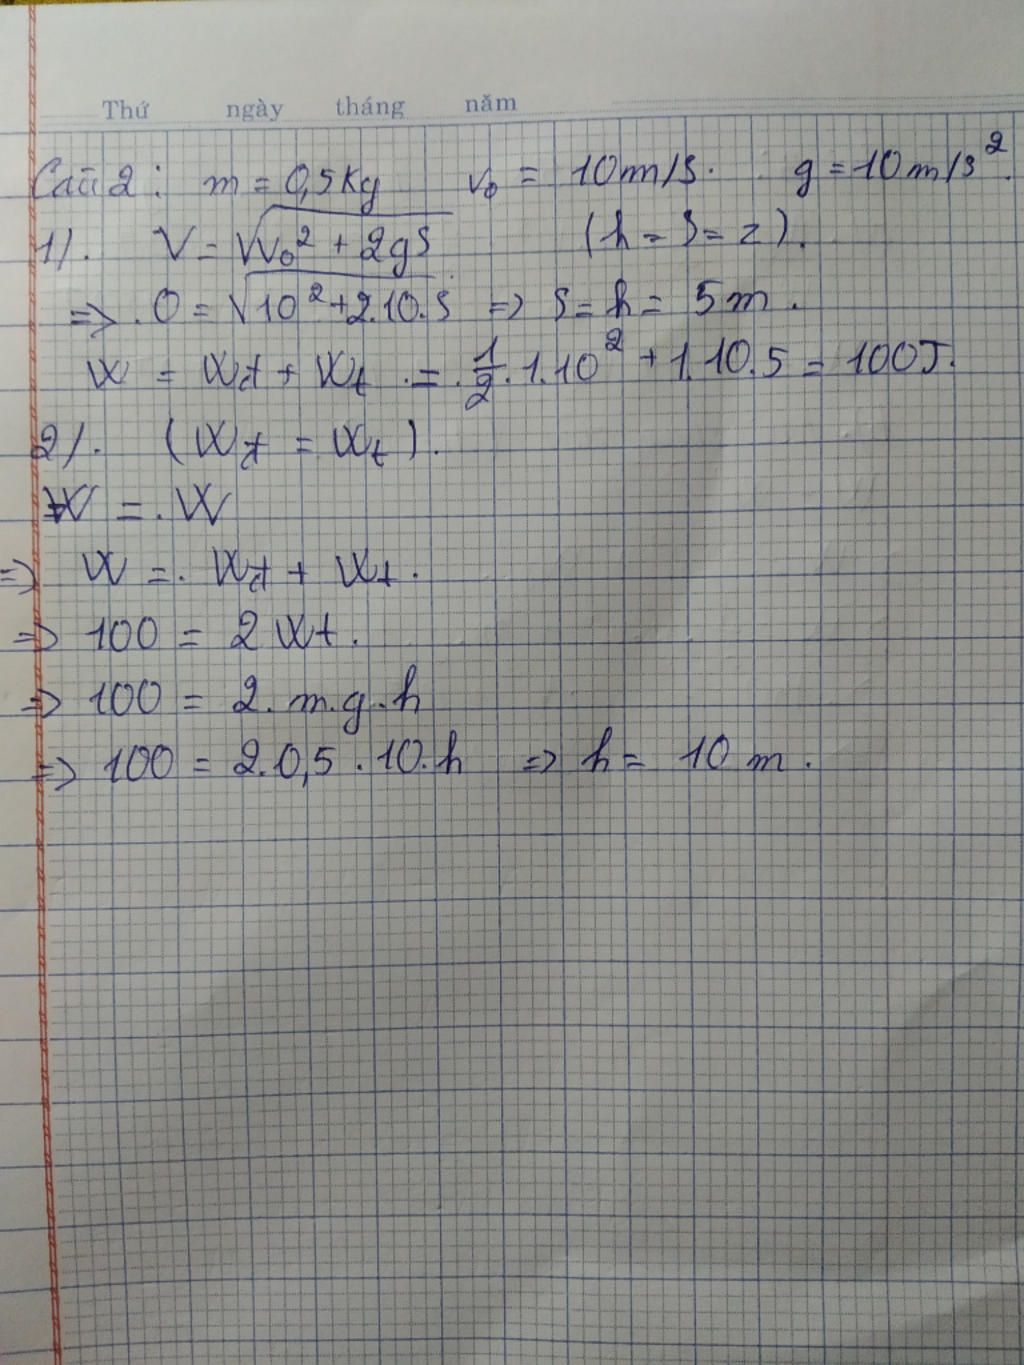 Thứ ngày tháng năm
Câu 2: m = 0,5 Kg v₀ = 10 m/s. g = 10 m/s².
1/. V = √(v₀² + 2gS) (h = S = z).
=> . 0 = √(10² + 2.10.S) => S = h = 5 m.
W = Wđ + Wt . = . 1/2 . 1.10² + 1.10.5 = 100J.
2/. (Wđ = Wt).
W = . W
=> W = . Wđ + Wt.
=> 100 = 2 Wt.
=> 100 = 2. m.g.h
=> 100 = 2.0,5 . 10.h => h = 10 m.